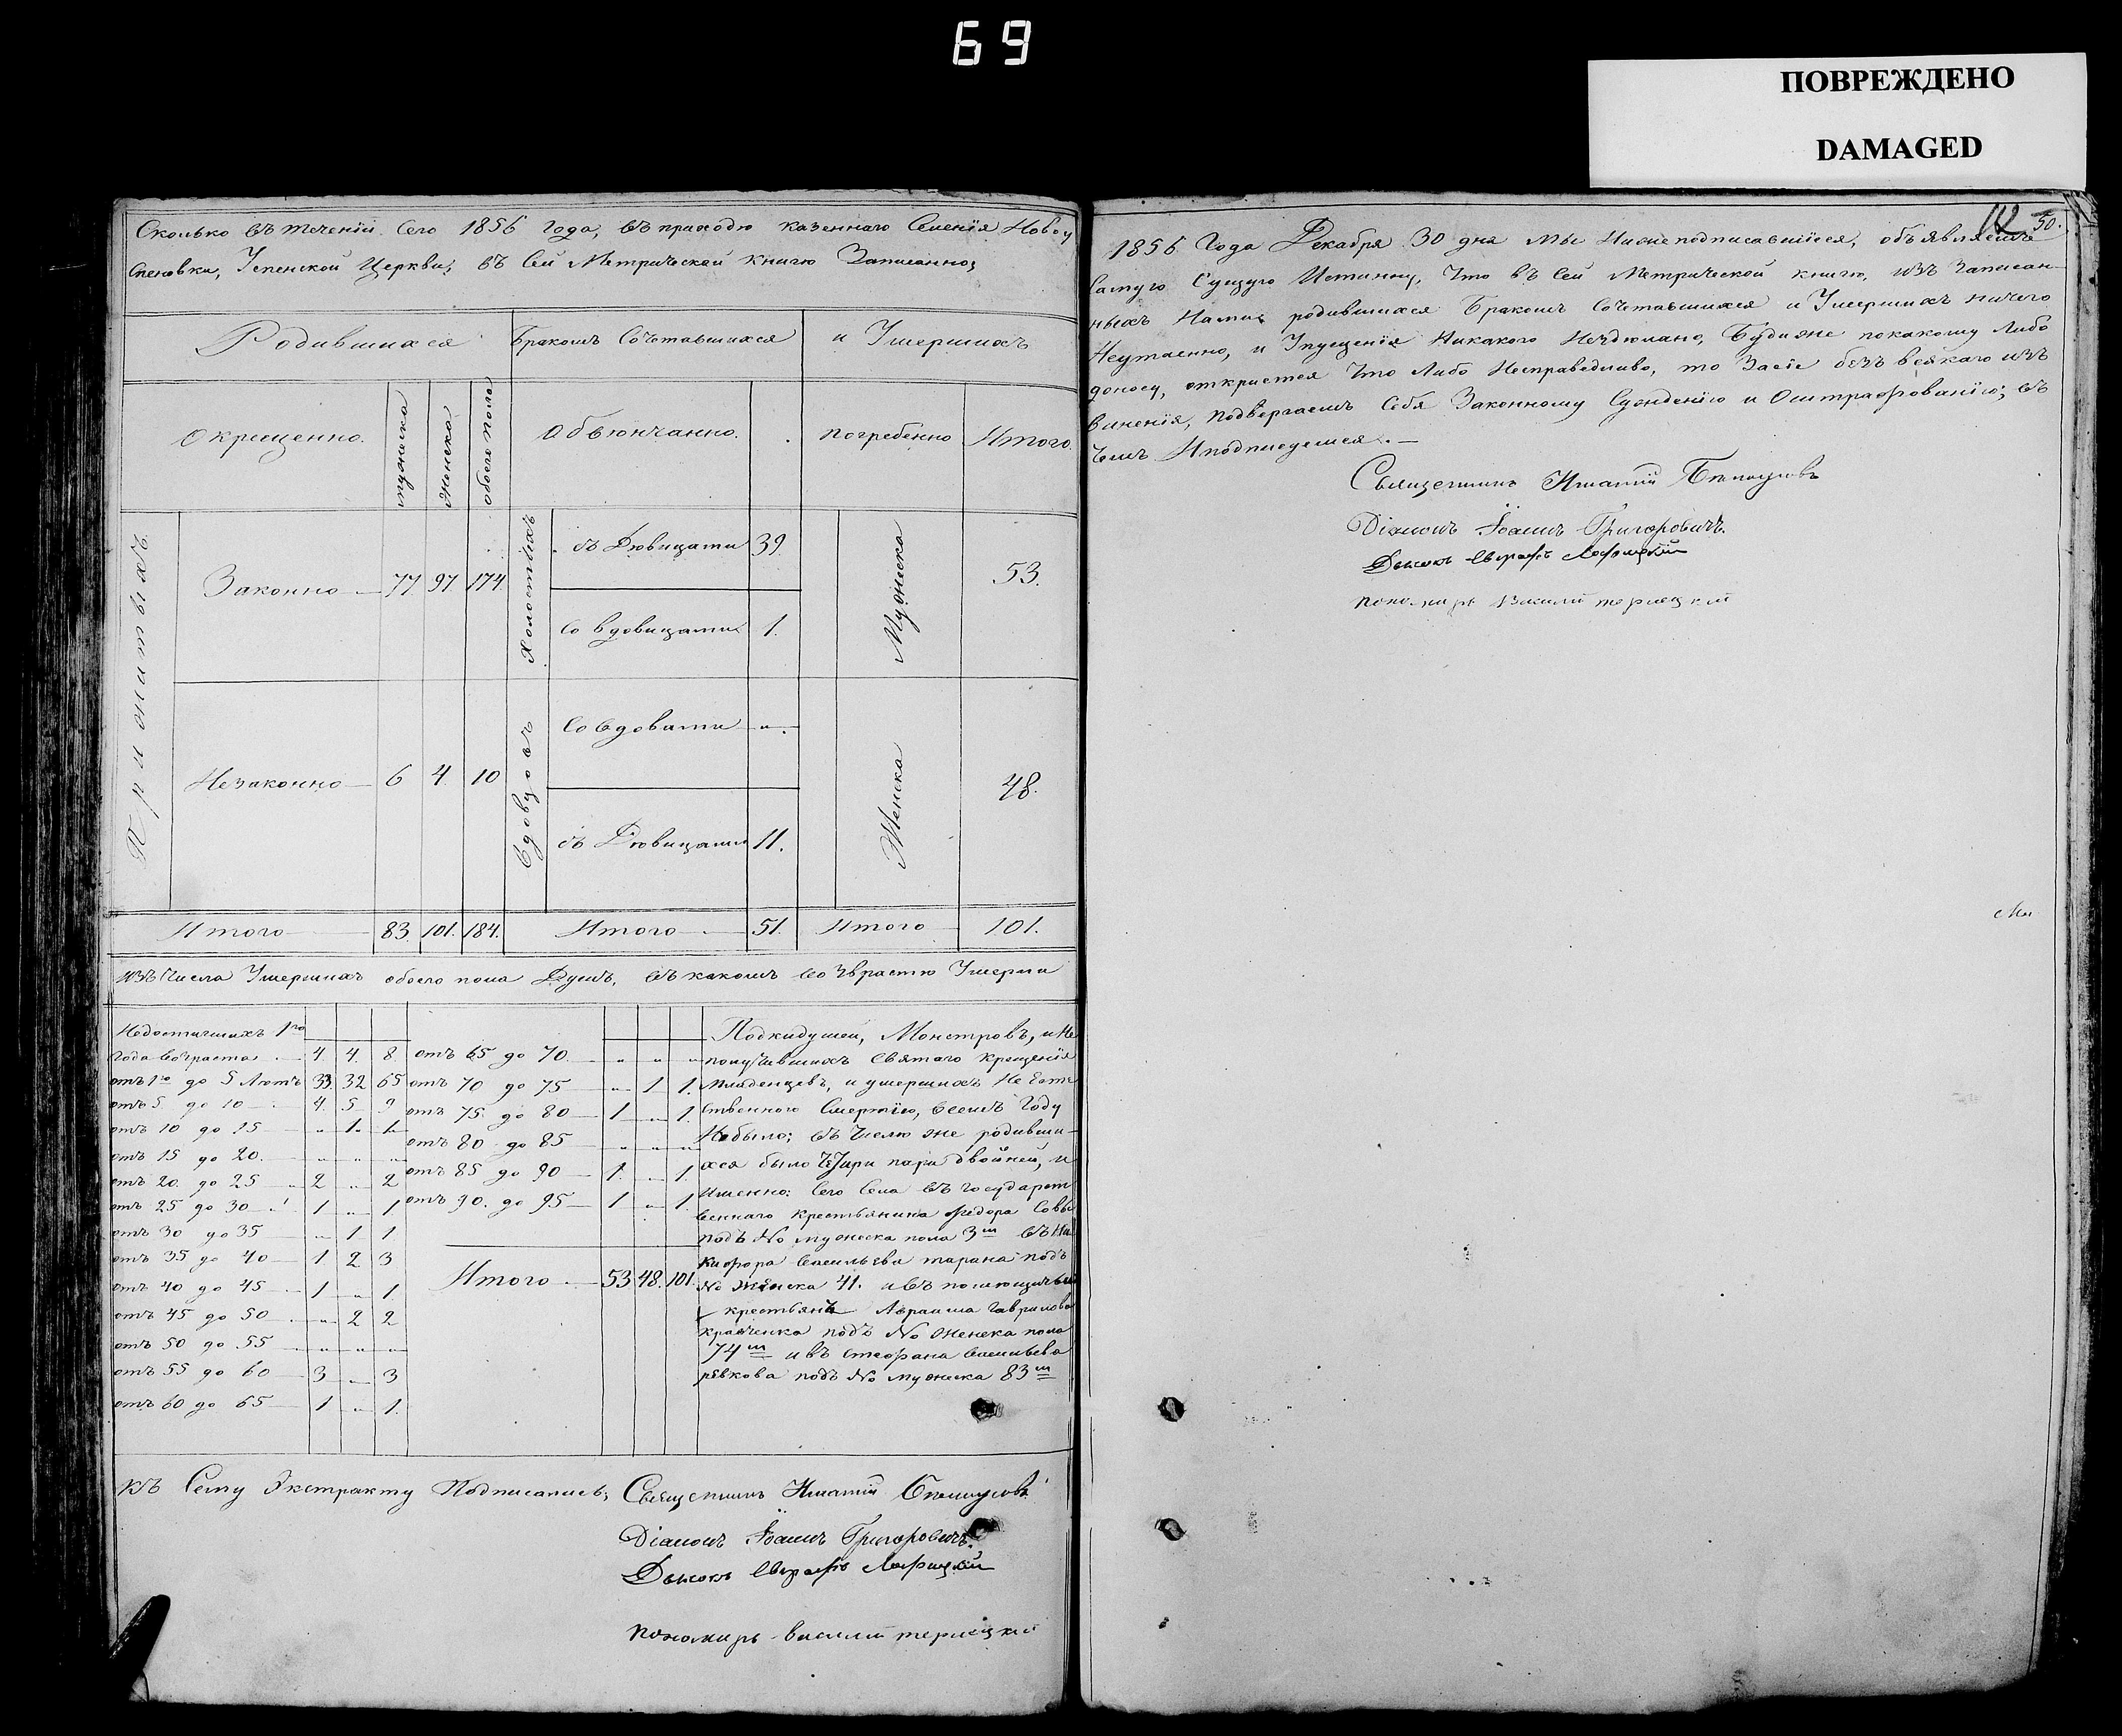 69
ПОВРЕЖДЕНО
DAMAGED
Сколько въ теченіи сего 1856 года, въ приходѣ казеннаго Селенія Новоу
спеновки, Успенской Церкви, въ сей Метрической книгѣ Записанно,
Родившихся
Бракомъ Сочетавшихся
и Умершихъ
Окрещенно.
мужеска
женска
обоего пола
Обвѣнчанно.
погребенно
Итого
Прижитыхъ
Законно 77 97 174.
Незаконно 6 4. 10
Холостыхъ
съ Дѣвицами 39.
со вдовицами 1.
вдовцовъ
со вдовами "
съ Дѣвицами 11.
Мужеска 53.
Женска 48.
Итого 83. 101. 184. Итого 51. Итого 101.
изъ числа Умершихъ обоего пола Душъ, въ какомъ возврастѣ Умерли
Недостигшихъ 1го
года возраста 4. 4. 8.
отъ 1го до 5 Лѣтъ 33. 32 65
отъ 5 до 10 4. 5 9
отъ 10 до 15 " 1. 1.
отъ 15 до 20. " " "
отъ 20. до 25 2 " 2
отъ 25 до 30 1 " 1
отъ 30 до 35 " 1 1
отъ 35 до 40 1 2 3
отъ 40 до 45 1 " 1
отъ 45 до 50 " 2 2
отъ 50 до 55 " " "
отъ 55 до 60 3 " 3
отъ 60 до 65 1 " 1.
отъ 65 до 70 " " "
отъ 70 до 75 " 1 1.
отъ 75. до 80 1 " 1.
отъ 80 до 85 " " "
отъ 85 до 90 1. " 1.
отъ 90. до 95 1 " 1.
Итого 53 48. 101.
Подкидушей, Монстровъ, и Не
получившихъ святаго крещенія
младенцевъ, и умершихъ Не Есте
ственною Смертію, всемъ году
Небыло; въ числѣ же родивши
хся было четыри пари двойней, и
Именно: сего села въ государст
веннаго крестьянина Федора
подъ No мужеска пола 3м въ Ни
кифора Васильева тарана подъ
No женска 41.
крестьянъ Авраама Гаврилова
кравченка подъ No женска пола
74м и въ Стефана Васильева
ревкова подъ No мужеска 83м
Къ Сему Экстракту Подписались;
Священникъ Игнатій
Діаконъ Іоаннъ Григоровичъ.
Дьячокъ Евграфъ
пономарь василій терлецкій
112
50.
1856 Года Декабря 30 дня Мы Нижеподписавшіеся, объявляемъ
Самую Сущую Истинну, Что въ Сей Метрической книгѣ, изъ Записан
ныхъ Нами родившихся Бракомъ сочетавшихся и Умершихъ ничего
Неутаенно, и Упущенія Никакого Неудѣлано, Будиже покакому Либо
доносу, откриется Что Либо Несправедливо, то Засіе безъ всякаго изъ
виненія, подвергаемъ Себя Законному Сужденію и Оштрафованію; въ
Чемъ Иподписуемся.
Священникъ Игнатій
Діаконъ Іоаннъ Григоровичъ.
Дьячокъ Евграфъ
пономарь Василій терлецкій